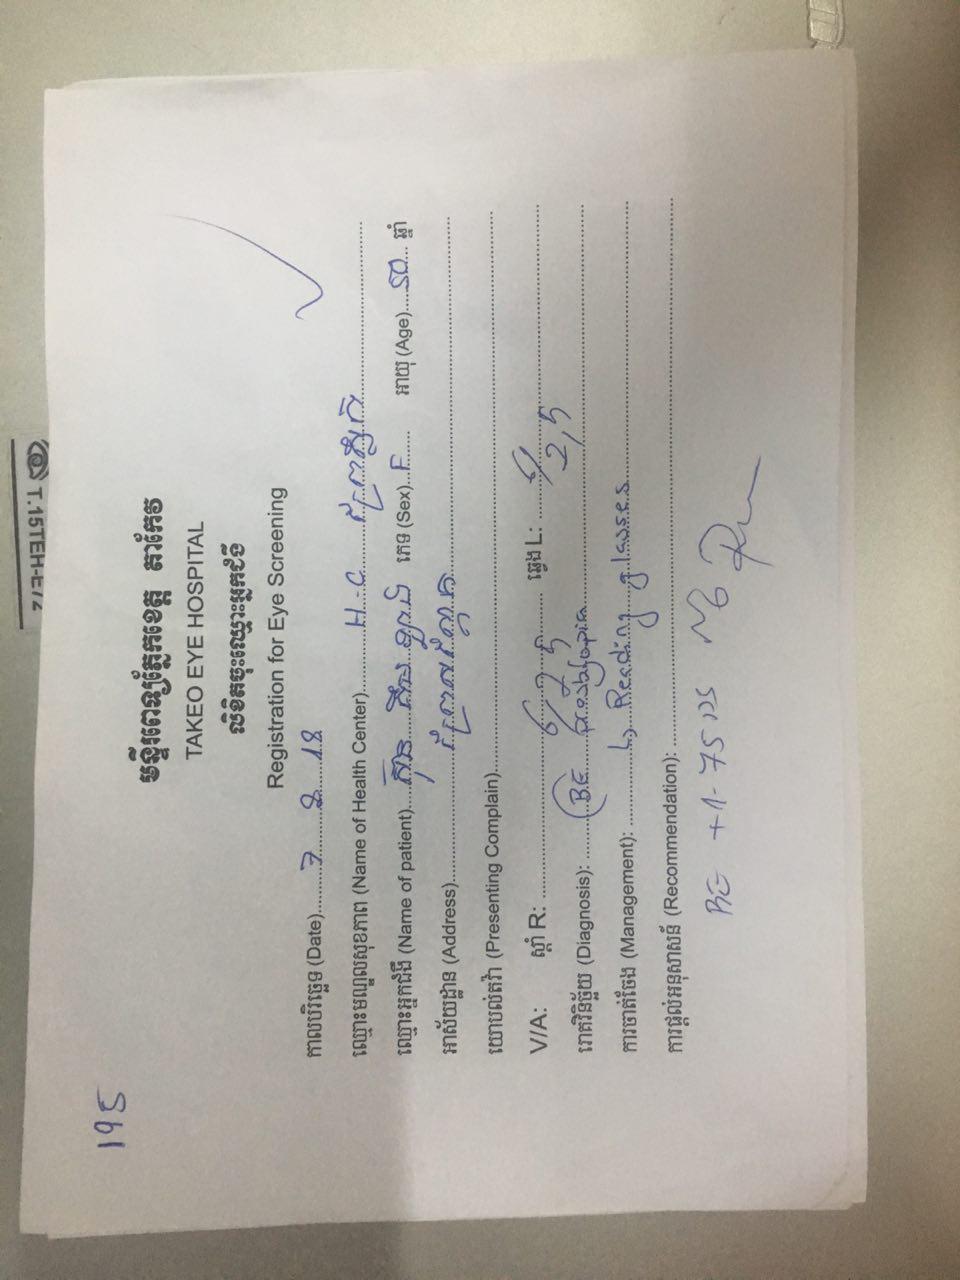 T.15TEH-E72
195
មន្ទីរពេទ្យភ្នែកខេត្ត តាកែវ
TAKEO EYE HOSPITAL
លិខិតចុះឈ្មោះអ្នកជំងឺ
Registration for Eye Screening
កាលបរិច្ឆេទ (Date) 7 8 18
ឈ្មោះមណ្ឌលសុខភាព (Name of Health Center) H-C
ឈ្មោះអ្នកជំងឺ (Name of patient) ស៊ុន គឹម ឡាង ភេទ (Sex) F អាយុ (Age) 50 ឆ្នាំ
អាស័យដ្ឋាន (Address)
យោបល់តវ៉ា (Presenting Complain)
V/A: ស្តាំ R: 6/7,5 ឆ្វេង L:
រោគវិនិច្ឆ័យ (Diagnosis): BE presbyopia
ការចាត់ចែង (Management): ↳ Reading glasses
ការផ្តល់អនុសាសន៍ (Recommendation):
BE +1.75 DS N6